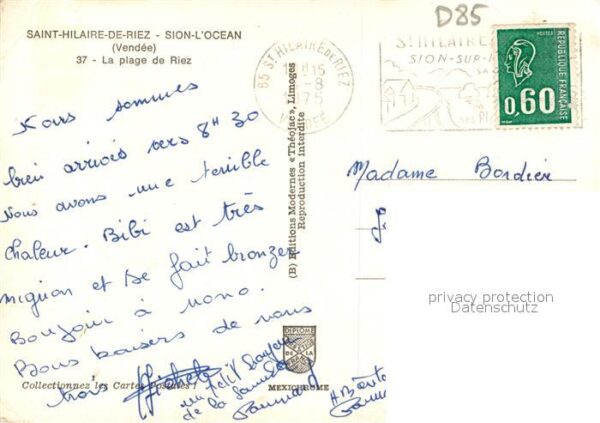 D85
SAINT-HILAIRE-DE-RIEZ - SION-L'OCEAN
(Vendée)
37 - La plage de Riez
85 ST HILAIRE DE RIEZ
15
-8
75
ST HILAIRE
SION-SUR-
POSTES
REPUBLIQUE FRANÇAISE
0,60
Nous sommes
bien arrivés vers 8H30
Nous avons une terrible
chaleur. Bibi est très
mignon et se fait bronzer
Bonjour à Nono.
Bons baisers de nous
trois
un petit
de la
(B) Editions Modernes «Théojac», Limoges
Reproduction interdite
Madame Bordier
privacy protection
Datenschutz
DIPLOME
DE LA
MEXICHROME
Collectionnez les Cartes Postales !